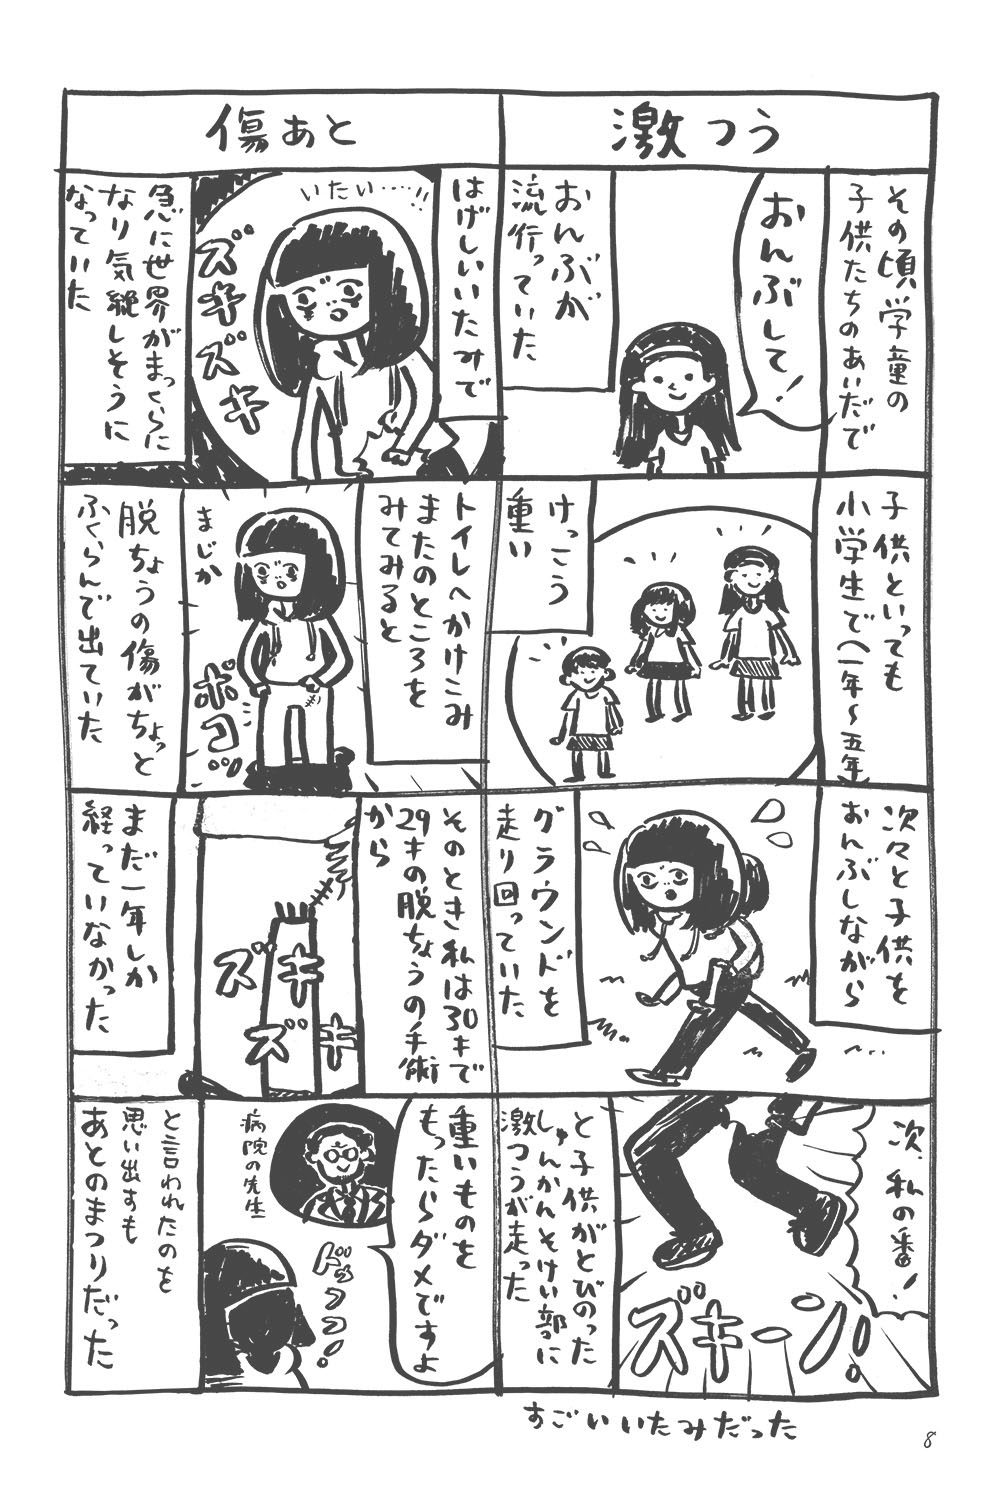 激つう
その頃学童の
子供たちのあいだで
おんぶして!
おんぶが
流行っていた
子供といっても
小学生で(一年〜五年
けっこう
重い
次々と子供を
おんぶしながら
グラウンドを
走り回っていた
次、私の番!
ズキーン!
と子供がとびのった
しゅんかんそけい部に
激つうが走った
すごいいたみだった
傷あと
はげしいいたみで
いたい……!!
ズキズキ
急に世界がまっくらに
なり気絶しそうに
なっていた
トイレへかけこみ
またのところを
みてみると
まじか
ボコッ
脱ちょうの傷がちょっと
ふくらんで出ていた
そのとき私は30才で
29才の脱ちょうの手術
から
ズキ
ズキ
まだ一年しか
経っていなかった
重いものを
もったらダメですよ
病院の先生
ドックン!
と言われたのを
思い出すも
あとのまつりだった
8